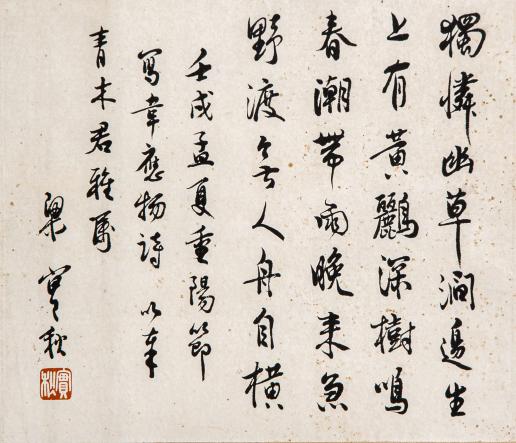 獨憐幽草澗邊生
上有黃鸝深樹鳴
春潮帶雨晚來急
野渡無人舟自橫
壬戌孟夏重陽節
寫韋應物詩以奉
青木君雅屬
梁實秋
實秋